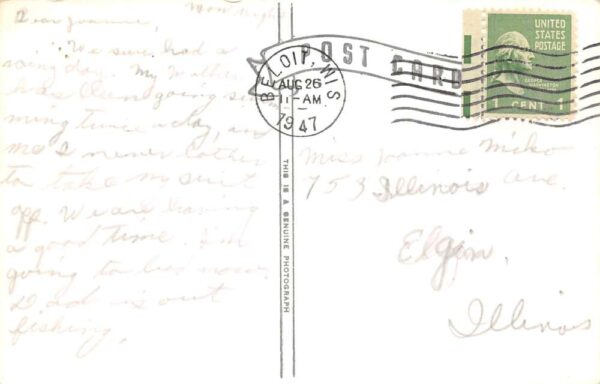 Mon night
Dear Joanne,
We sure had a
day. My Mother
has been going swim
ming twice a day, an
me I never bother
to take my suit
off. We are having
a good time. I'm
going to bed now.
Dad is out
fishing.
THIS IS A GENUINE PHOTOGRAPH
POST CARD
BELOIT, WIS
AUG 26
11-AM
1947
UNITED
STATES
POSTAGE
WASHINGTON
1 CENT 1
Miss Joanne
753 Illinois Ave.
Elgin,
Illinois